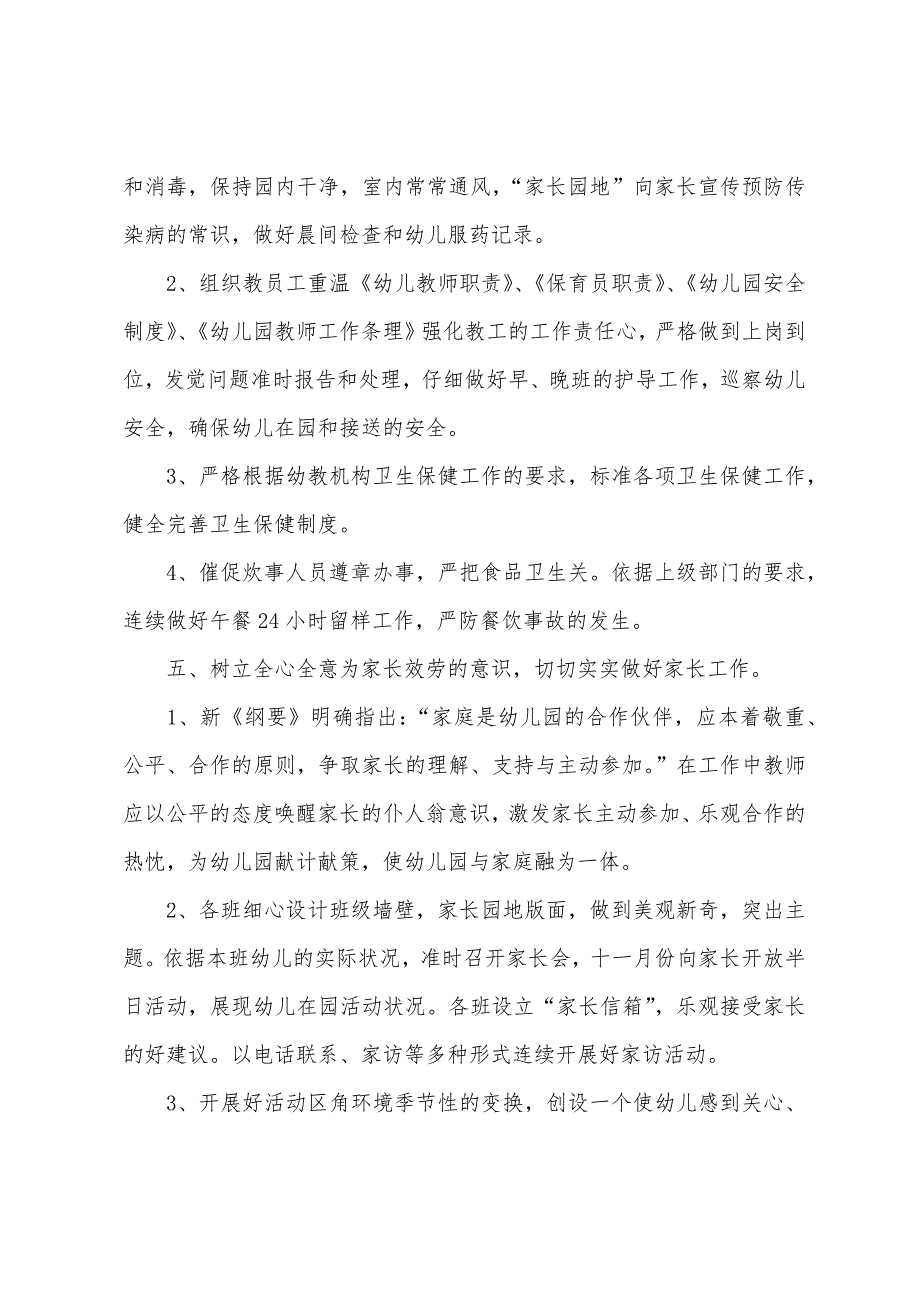 和消毒，保持园内干净，室内常常通风，“家长园地”向家长宣传预防传
染病的常识，做好晨间检查和幼儿服药记录。
2、组织教员工重温《幼儿教师职责》、《保育员职责》、《幼儿园安全
制度》、《幼儿园教师工作条理》强化教工的工作责任心，严格做到上岗到
位，发觉问题准时报告和处理，仔细做好早、晚班的护导工作，巡察幼儿
安全，确保幼儿在园和接送的安全。
3、严格根据幼教机构卫生保健工作的要求，标准各项卫生保健工作，
健全完善卫生保健制度。
4、催促炊事人员遵章办事，严把食品卫生关。依据上级部门的要求，
连续做好午餐 24 小时留样工作，严防餐饮事故的发生。
五、树立全心全意为家长效劳的意识，切切实实做好家长工作。
1、新《纲要》明确指出：“家庭是幼儿园的合作伙伴，应本着敬重、
公平、合作的原则，争取家长的理解、支持与主动参加。”在工作中教师
应以公平的态度唤醒家长的仆人翁意识，激发家长主动参加、乐观合作的
热忱，为幼儿园献计献策，使幼儿园与家庭融为一体。
2、各班细心设计班级墙壁，家长园地版面，做到美观新奇，突出主
题。依据本班幼儿的实际状况，准时召开家长会，十一月份向家长开放半
日活动，展现幼儿在园活动状况。各班设立“家长信箱”，乐观接受家长
的好建议。以电话联系、家访等多种形式连续开展好家访活动。
3、开展好活动区角环境季节性的变换，创设一个使幼儿感到关心、